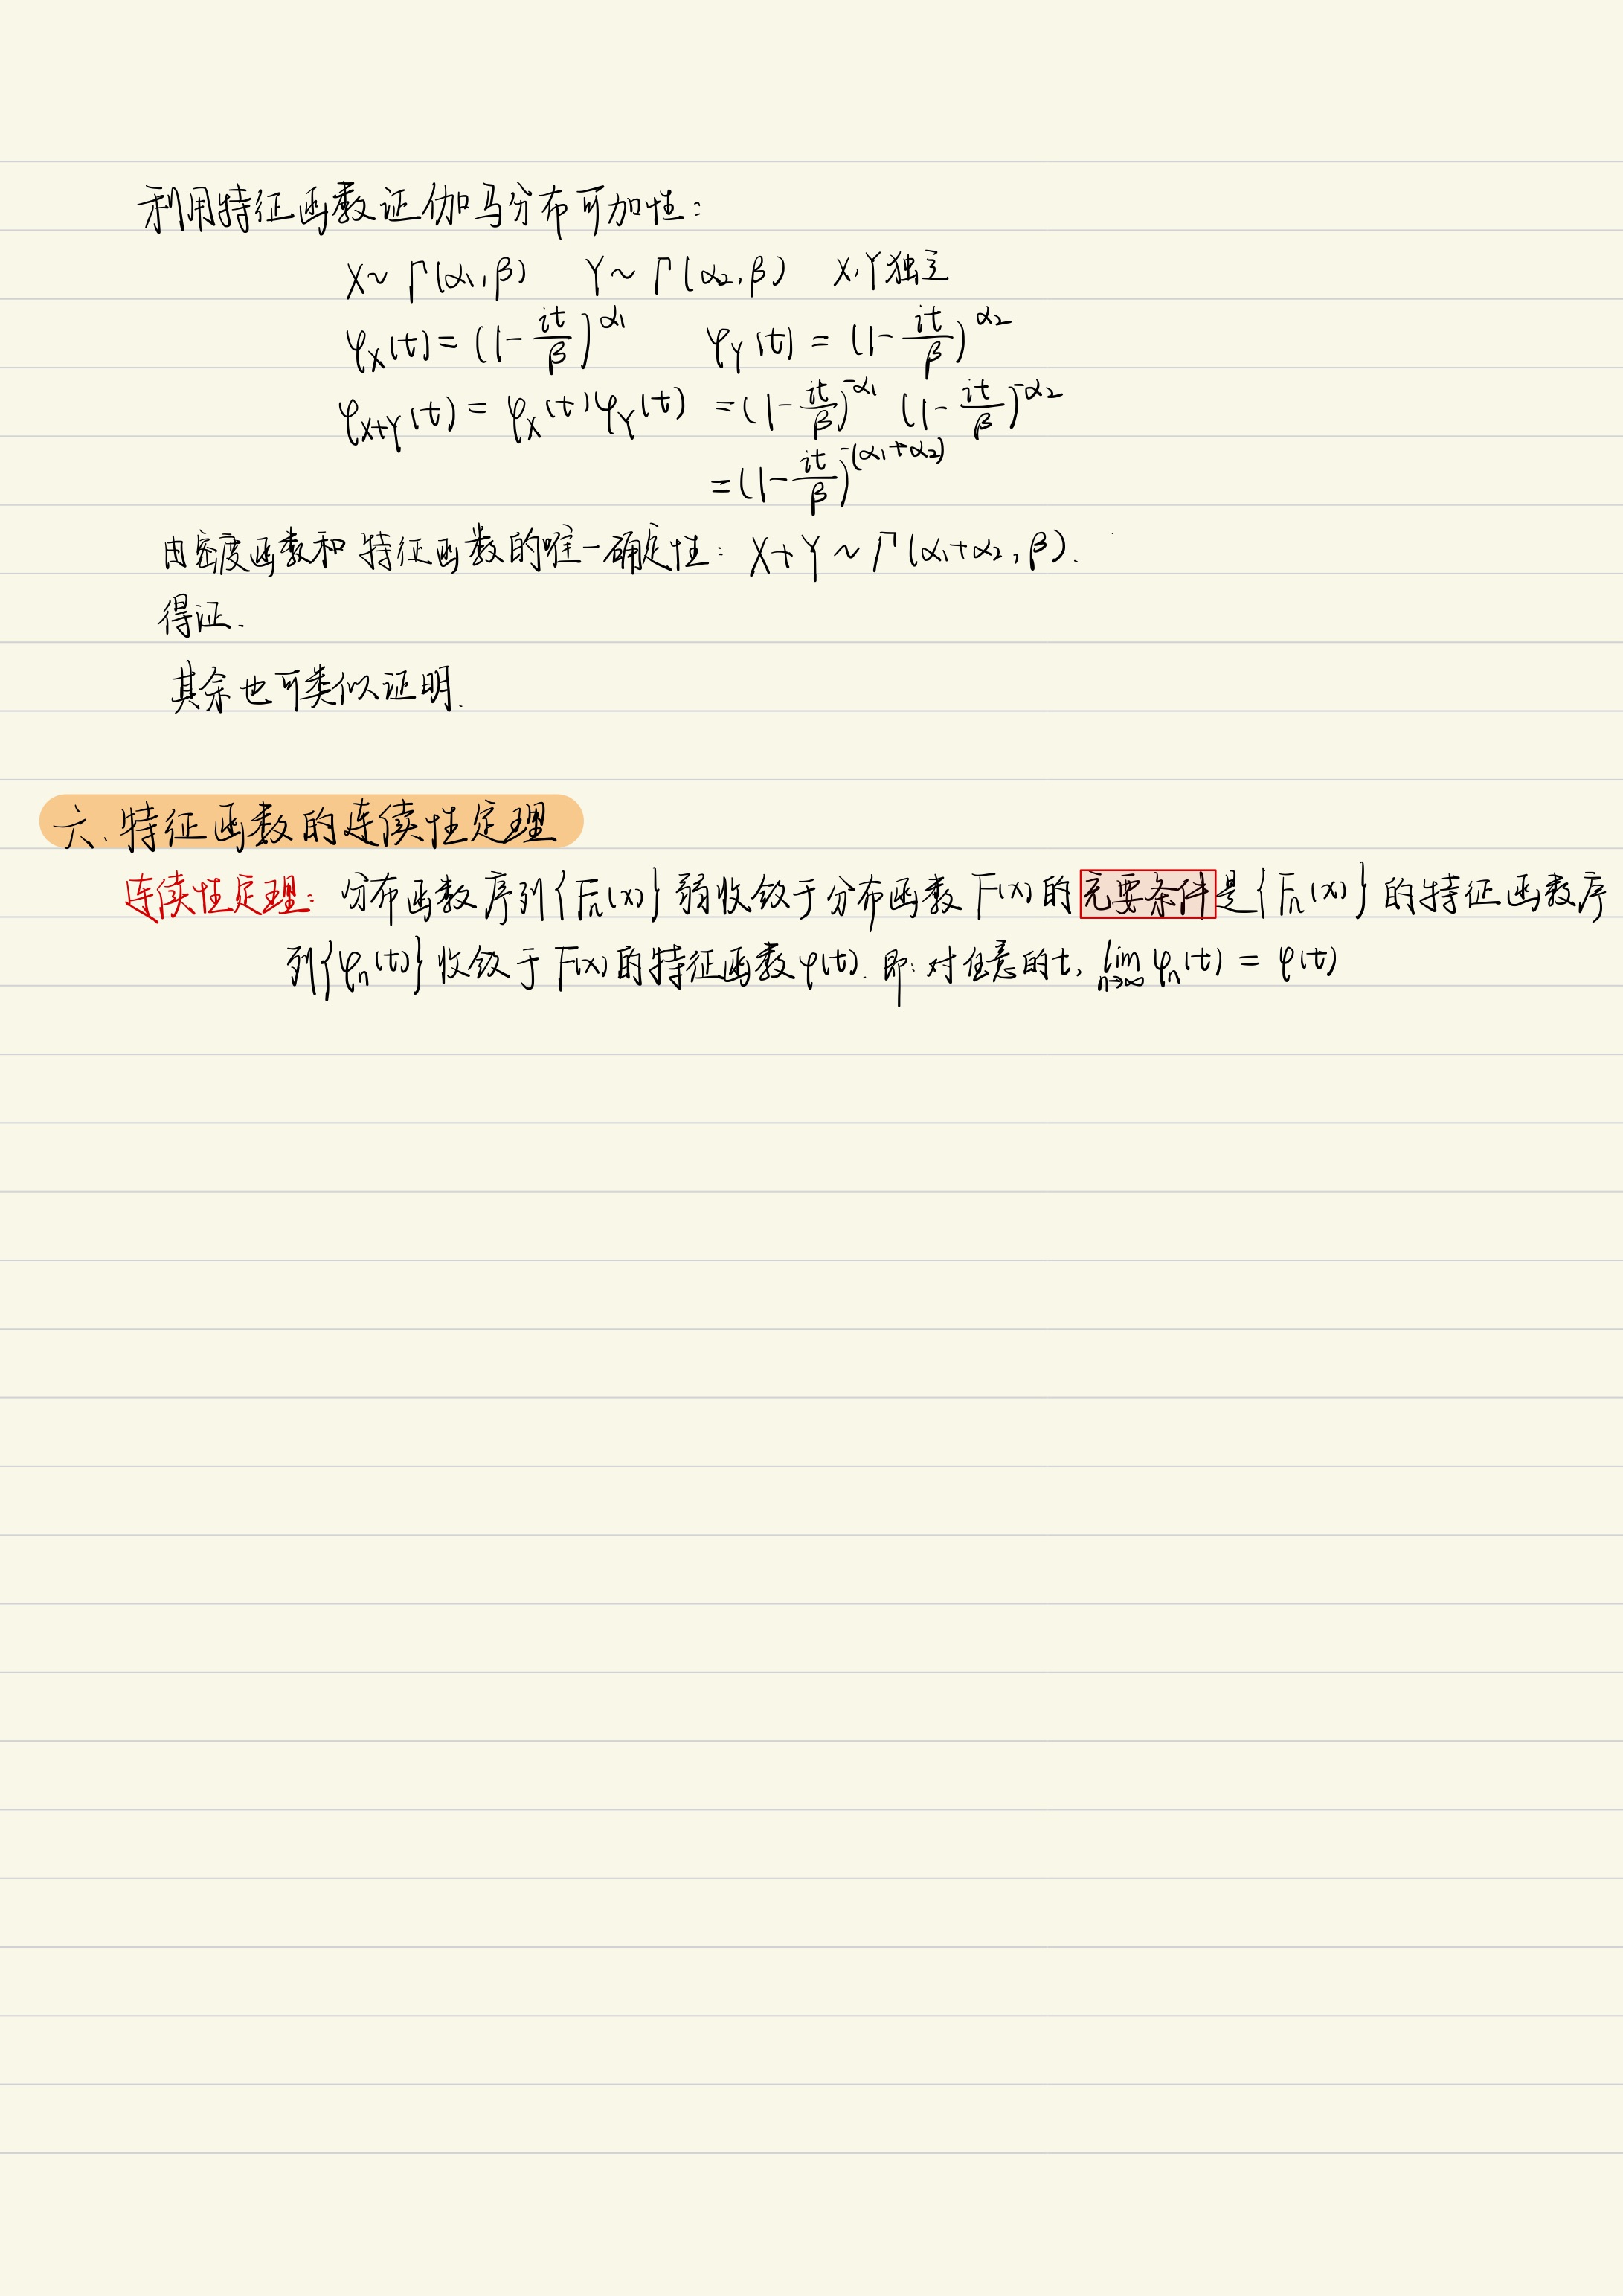 利用特征函数证伽马分布可加性：
X~Γ(α₁,β) Y~Γ(α₂,β) X,Y独立
φ_X(t)=(1-it/β)^α₁ φ_Y(t)=(1-it/β)^α₂
φ_{X+Y}(t)=φ_X(t)φ_Y(t) =(1-it/β)^{-α₁} (1-it/β)^{-α₂}
=(1-it/β)^{-(α₁+α₂)}
由密度函数和特征函数的唯一确定性：X+Y~Γ(α₁+α₂,β).
得证.
其余也可类似证明.
六、特征函数的连续性定理
连续性定理：分布函数序列{F_n(x)}弱收敛于分布函数F(x)的充要条件是{F_n(x)}的特征函数序
列{φ_n(t)}收敛于F(x)的特征函数φ(t).即：对任意的t, lim_{n→∞} φ_n(t)=φ(t)